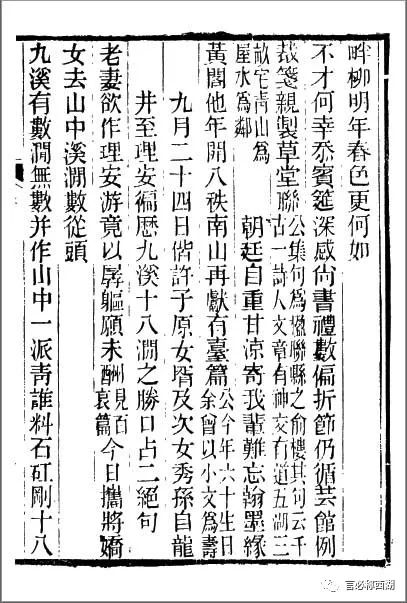 畔柳明年春色更何如
不才何幸忝賓筵深感尚書禮數偏折節仍循芸館例
裁箋親製草堂聯公集句為楹聯縣之俞樓其句云千古一詩人文章有神交有道五湖三
畝宅青山為屋水為鄰朝廷自重甘涼寄我輩難忘翰墨緣
黃閣他年開八秩南山再獻有臺篇公今年六十生日余曾以小文為壽
九月二十四日偕許子原女壻及次女秀孫自龍
井至理安徧歷九溪十八澗之勝口占二絕句
老妻欲作理安游竟以孱軀願未酬見百哀篇今日攜將嬌
女去山中溪澗數從頭
九溪有數澗無數并作山中一派青誰料石矼剛十八
言必称西湖